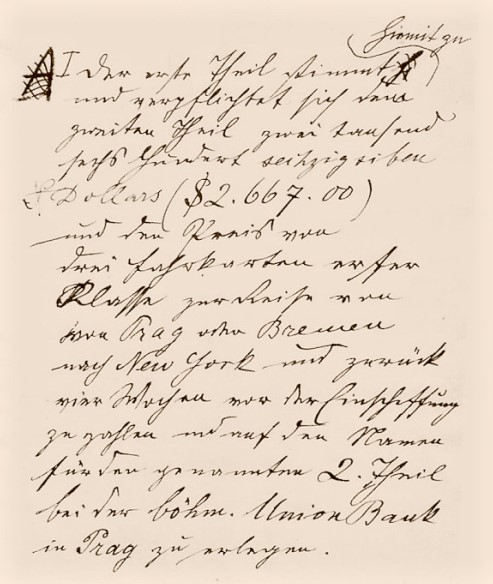 hiemit zu
I Der erste Theil stimmt
und verpflichtet sich dem
zweiten Theil zwei tausend
sechs hundert sechzigsieben
Dollars ($2.667.00)
und den Preis von
drei Fahrkarten erster
Klasse zur Reise von
von Prag oder Bremen
nach New York und zurück
vier Wochen vor der Einschiffung
zu zahlen und auf den Namen
für den genannten 2. Theil
bei der böhm. Union Bank
in Prag zu erlegen.